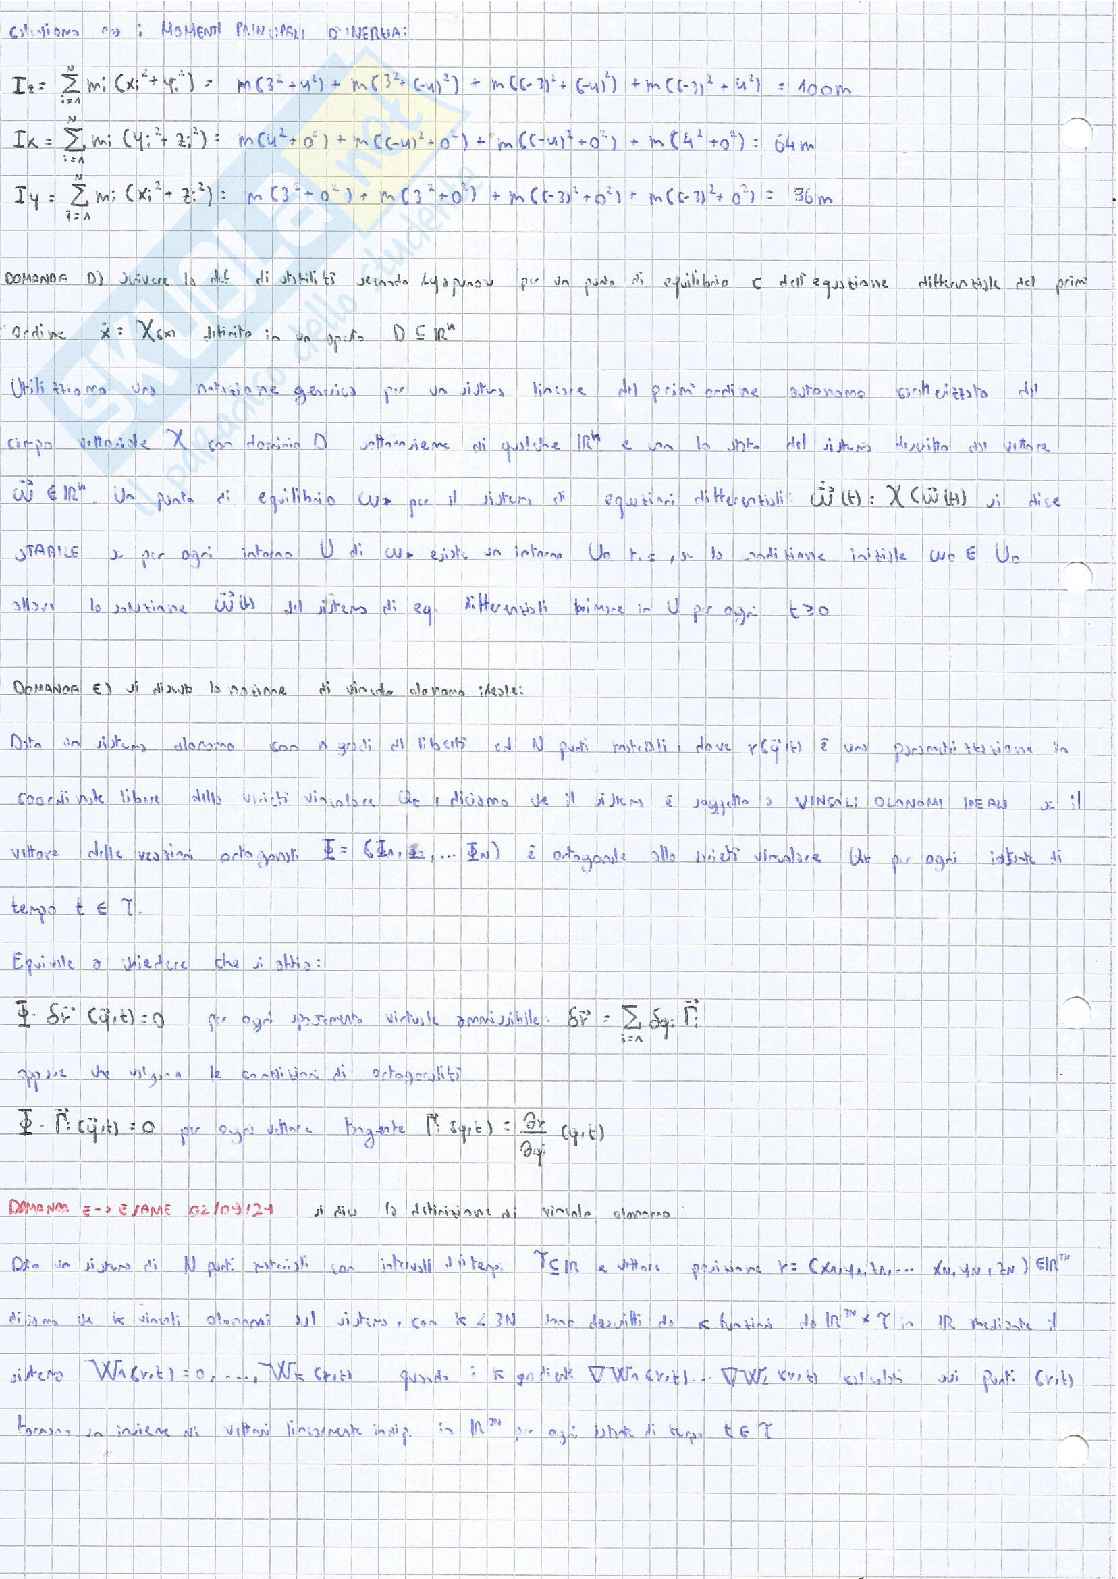 Calcoliamo ora i MOMENTI PRINCIPALI D'INERZIA:
Iz = Σ_{i=1}^{N} mi (xi² + yi²) = m(3² + 4²) + m(3² + (-4)²) + m((-3)² + (-4)²) + m((-3)² + 4²) = 100m
Ix = Σ_{i=1}^{N} mi (yi² + zi²) = m(4² + 0²) + m((-4)² + 0²) + m((-4)² + 0²) + m(4² + 0²) = 64m
Iy = Σ_{i=1}^{N} mi (xi² + zi²) = m(3² + 0²) + m(3² + 0²) + m((-3)² + 0²) + m((-3)² + 0²) = 36m
DOMANDA D) scrivere la def. di stabilità secondo Lyapunov per un punto di equilibrio c dell'equazione differenziale del primo
ordine ẋ = X(x) definita in un aperto D ⊆ ℝⁿ
Utilizziamo una notazione generica per un sistema lineare del prim'ordine autonomo caratterizzato dal
campo vettoriale X con dominio D sottoinsieme di qualche ℝⁿ e con lo stato del sistema descritto dal vettore
w⃗ ∈ ℝⁿ. Un punto di equilibrio w* per il sistema di equazioni differenziali: ẇ⃗(t) = X(w⃗(t)) si dice
STABILE se per ogni intorno U di w* esiste un intorno U₀ t.c., se la condizione iniziale w₀ ∈ U₀
allora la soluzione w⃗(t) del sistema di eq. differenziali rimane in U per ogni t ≥ 0
DOMANDA E) si discuta la nozione di vincolo olonomo ideale:
Dato un sistema olonomo con n gradi di libertà ed N punti materiali, dove r(q⃗,t) è una parametrizzazione in
coordinate libere della varietà vincolare Ut, diciamo che il sistema è soggetto a VINCOLI OLONOMI IDEALI se il
vettore delle reazioni ortogonali Φ = (Φ₁, Φ₂, ... ΦN) è ortogonale alla varietà vincolare Ut per ogni istante di
tempo t ∈ T.
Equivale a chiedere che si abbia:
Φ · δr⃗ (q⃗,t) = 0 per ogni spostamento virtuale ammissibile. δr⃗ = Σ_{i=1} δqi Γ⃗i
oppure che valgano le condizioni di ortogonalità
Φ · Γ⃗i (q⃗,t) = 0 per ogni vettore tangente Γi (q,t) = ∂r/∂qi (q,t)
DOMANDA E -> ESAME 02/09/21 si dia la definizione di vincolo olonomo:
Dato un sistema di N punti materiali con intervalli di tempo T ⊆ ℝ e vettore posizione r = (x₁, y₁, z₁, ... xN, yN, zN) ∈ ℝ³ᴺ
diciamo che k vincoli olonomi sul sistema, con k < 3N sono descritti da k funzioni da ℝ³ᴺ × T in ℝ mediante il
sistema W₁(r,t) = 0, ..., Wk (r,t) quando i k gradienti ∇W₁(r,t)... ∇Wk (r,t) calcolati nei punti (r,t)
formano un insieme di vettori linearmente indip. in ℝ³ᴺ per ogni istante di tempo t ∈ T
SKUOLA.net
il paradiso dello studente